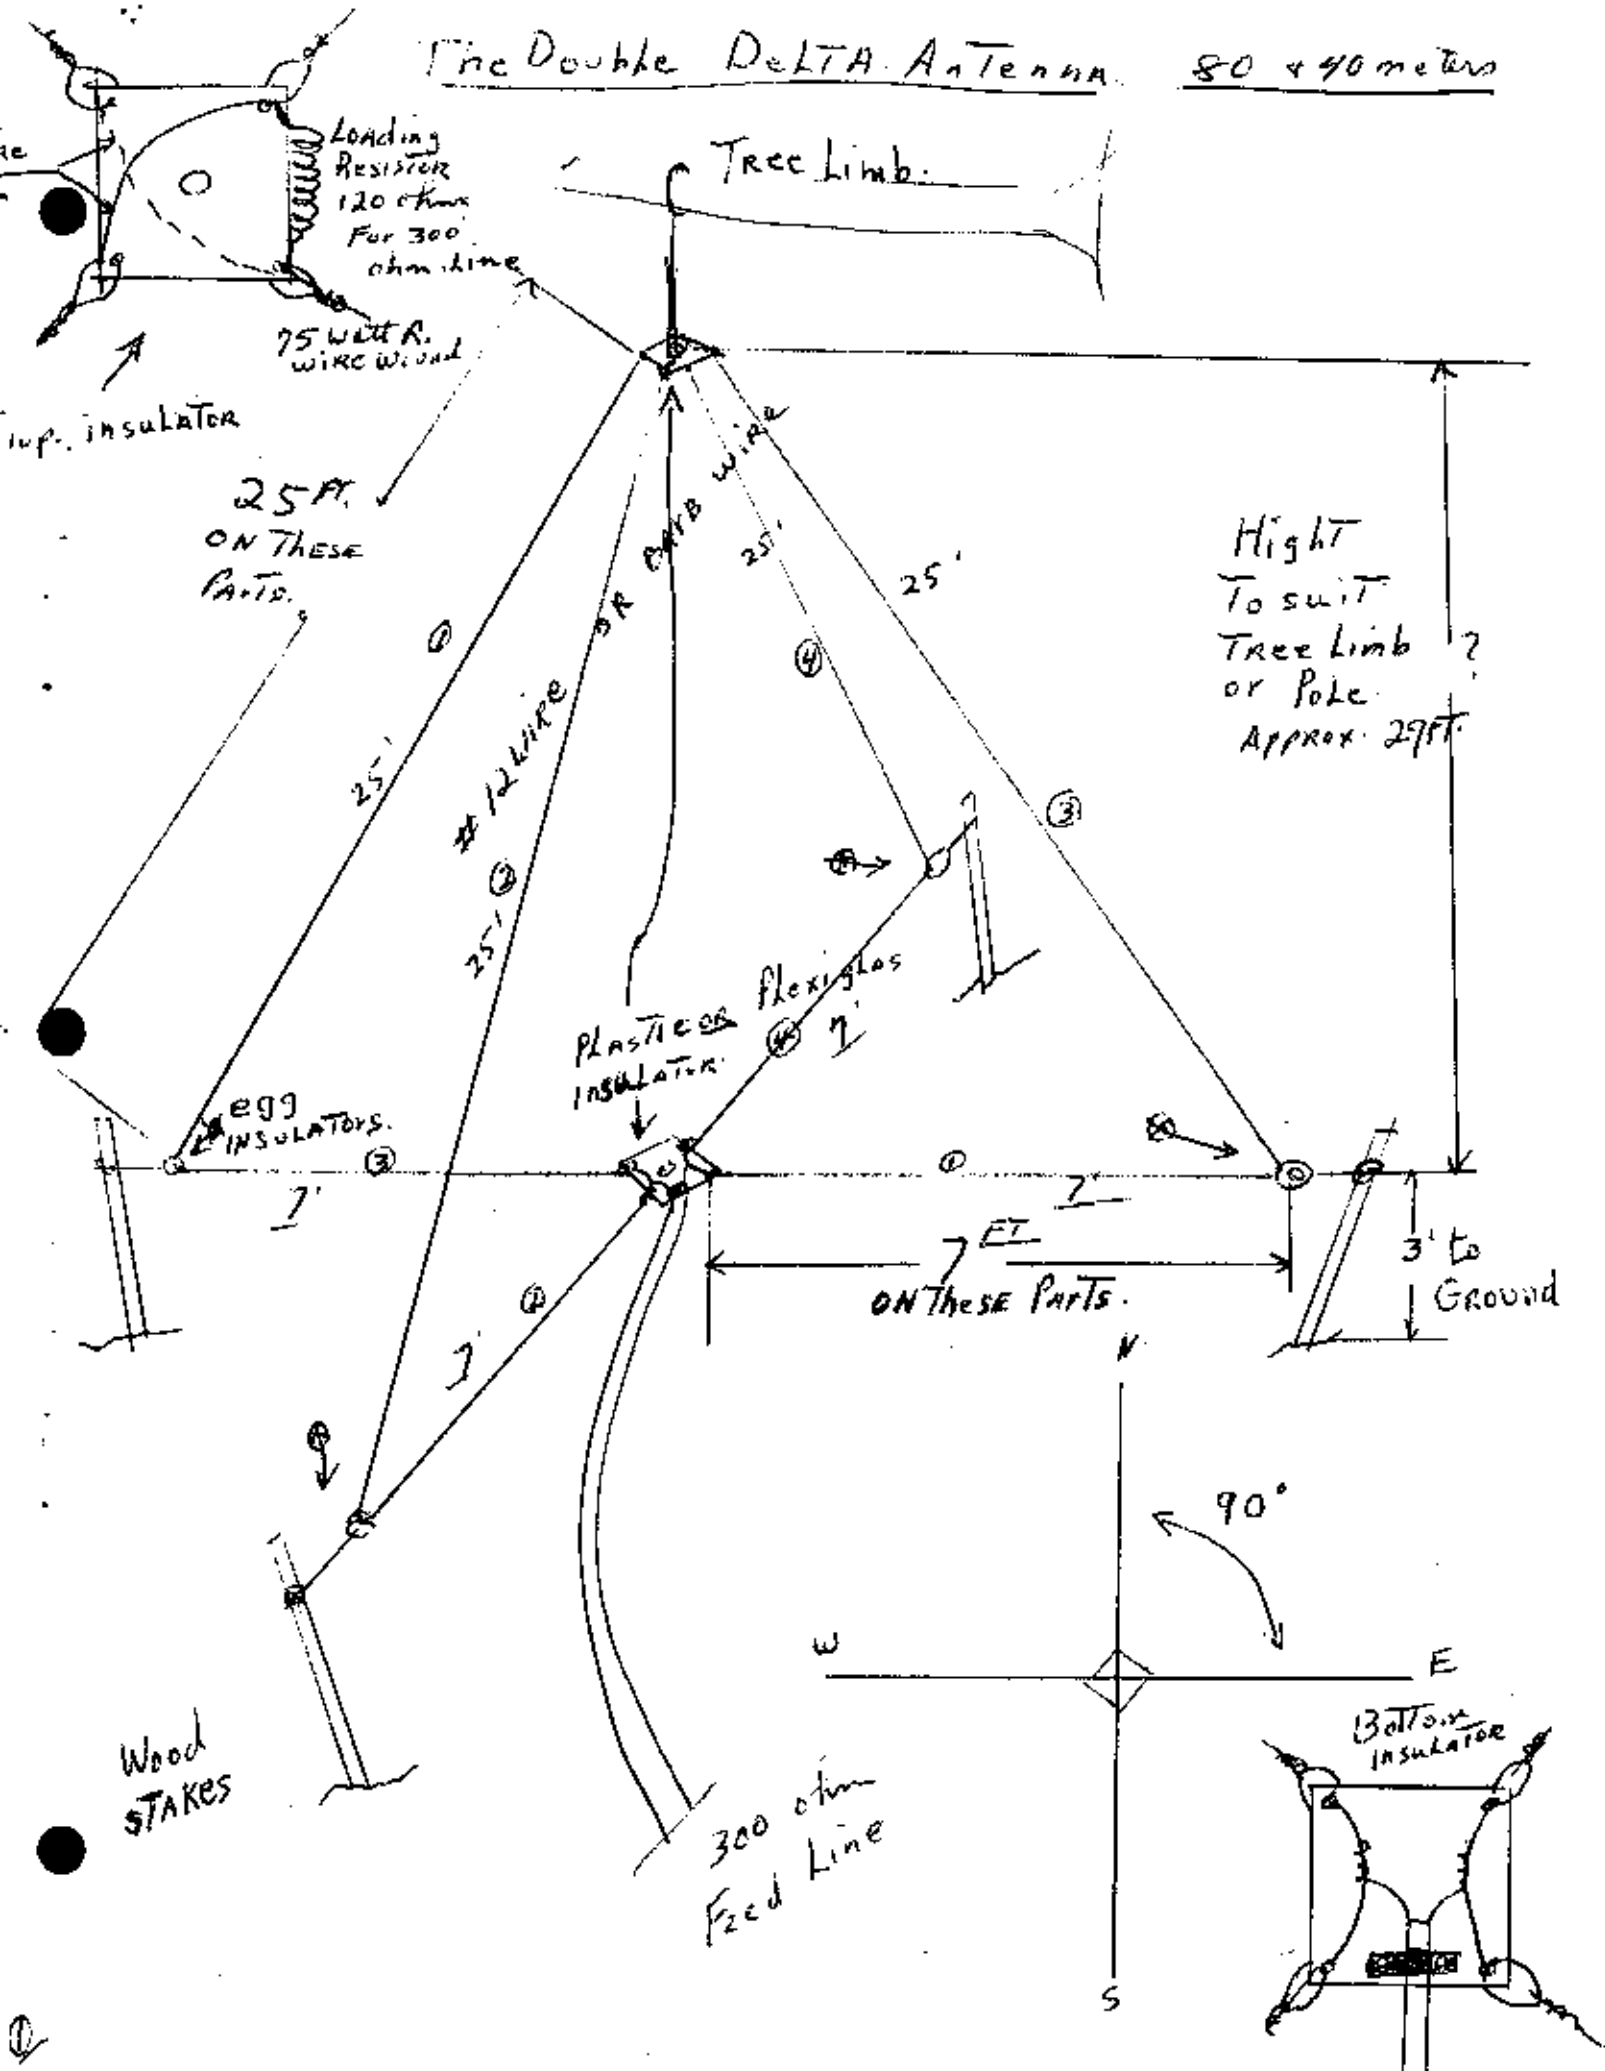 The Double DeLTA AnTenna 80 & 40 meters
Loading
Resistor
120 ohms
For 300
ohm Line
75 watt R.
wire wound
insulator
Tree Limb.
25 FT.
ON THESE
PARTS.
①
25'
# 12 WIRE
OR
wire
②
25'
④
25'
25'
③
Hight
To suit
Tree Limb
or Pole
Approx. 29FT.
?
PLASTIC OR Plexiglas
insulator
④ 7'
egg
INSULATORS.
③
7'
①
7'
7 FT
ON These Parts.
3' to
Ground
②
7'
Wood
STAKES
300 ohm
Feed Line
N
90°
W
E
S
Bottom
insulator
①